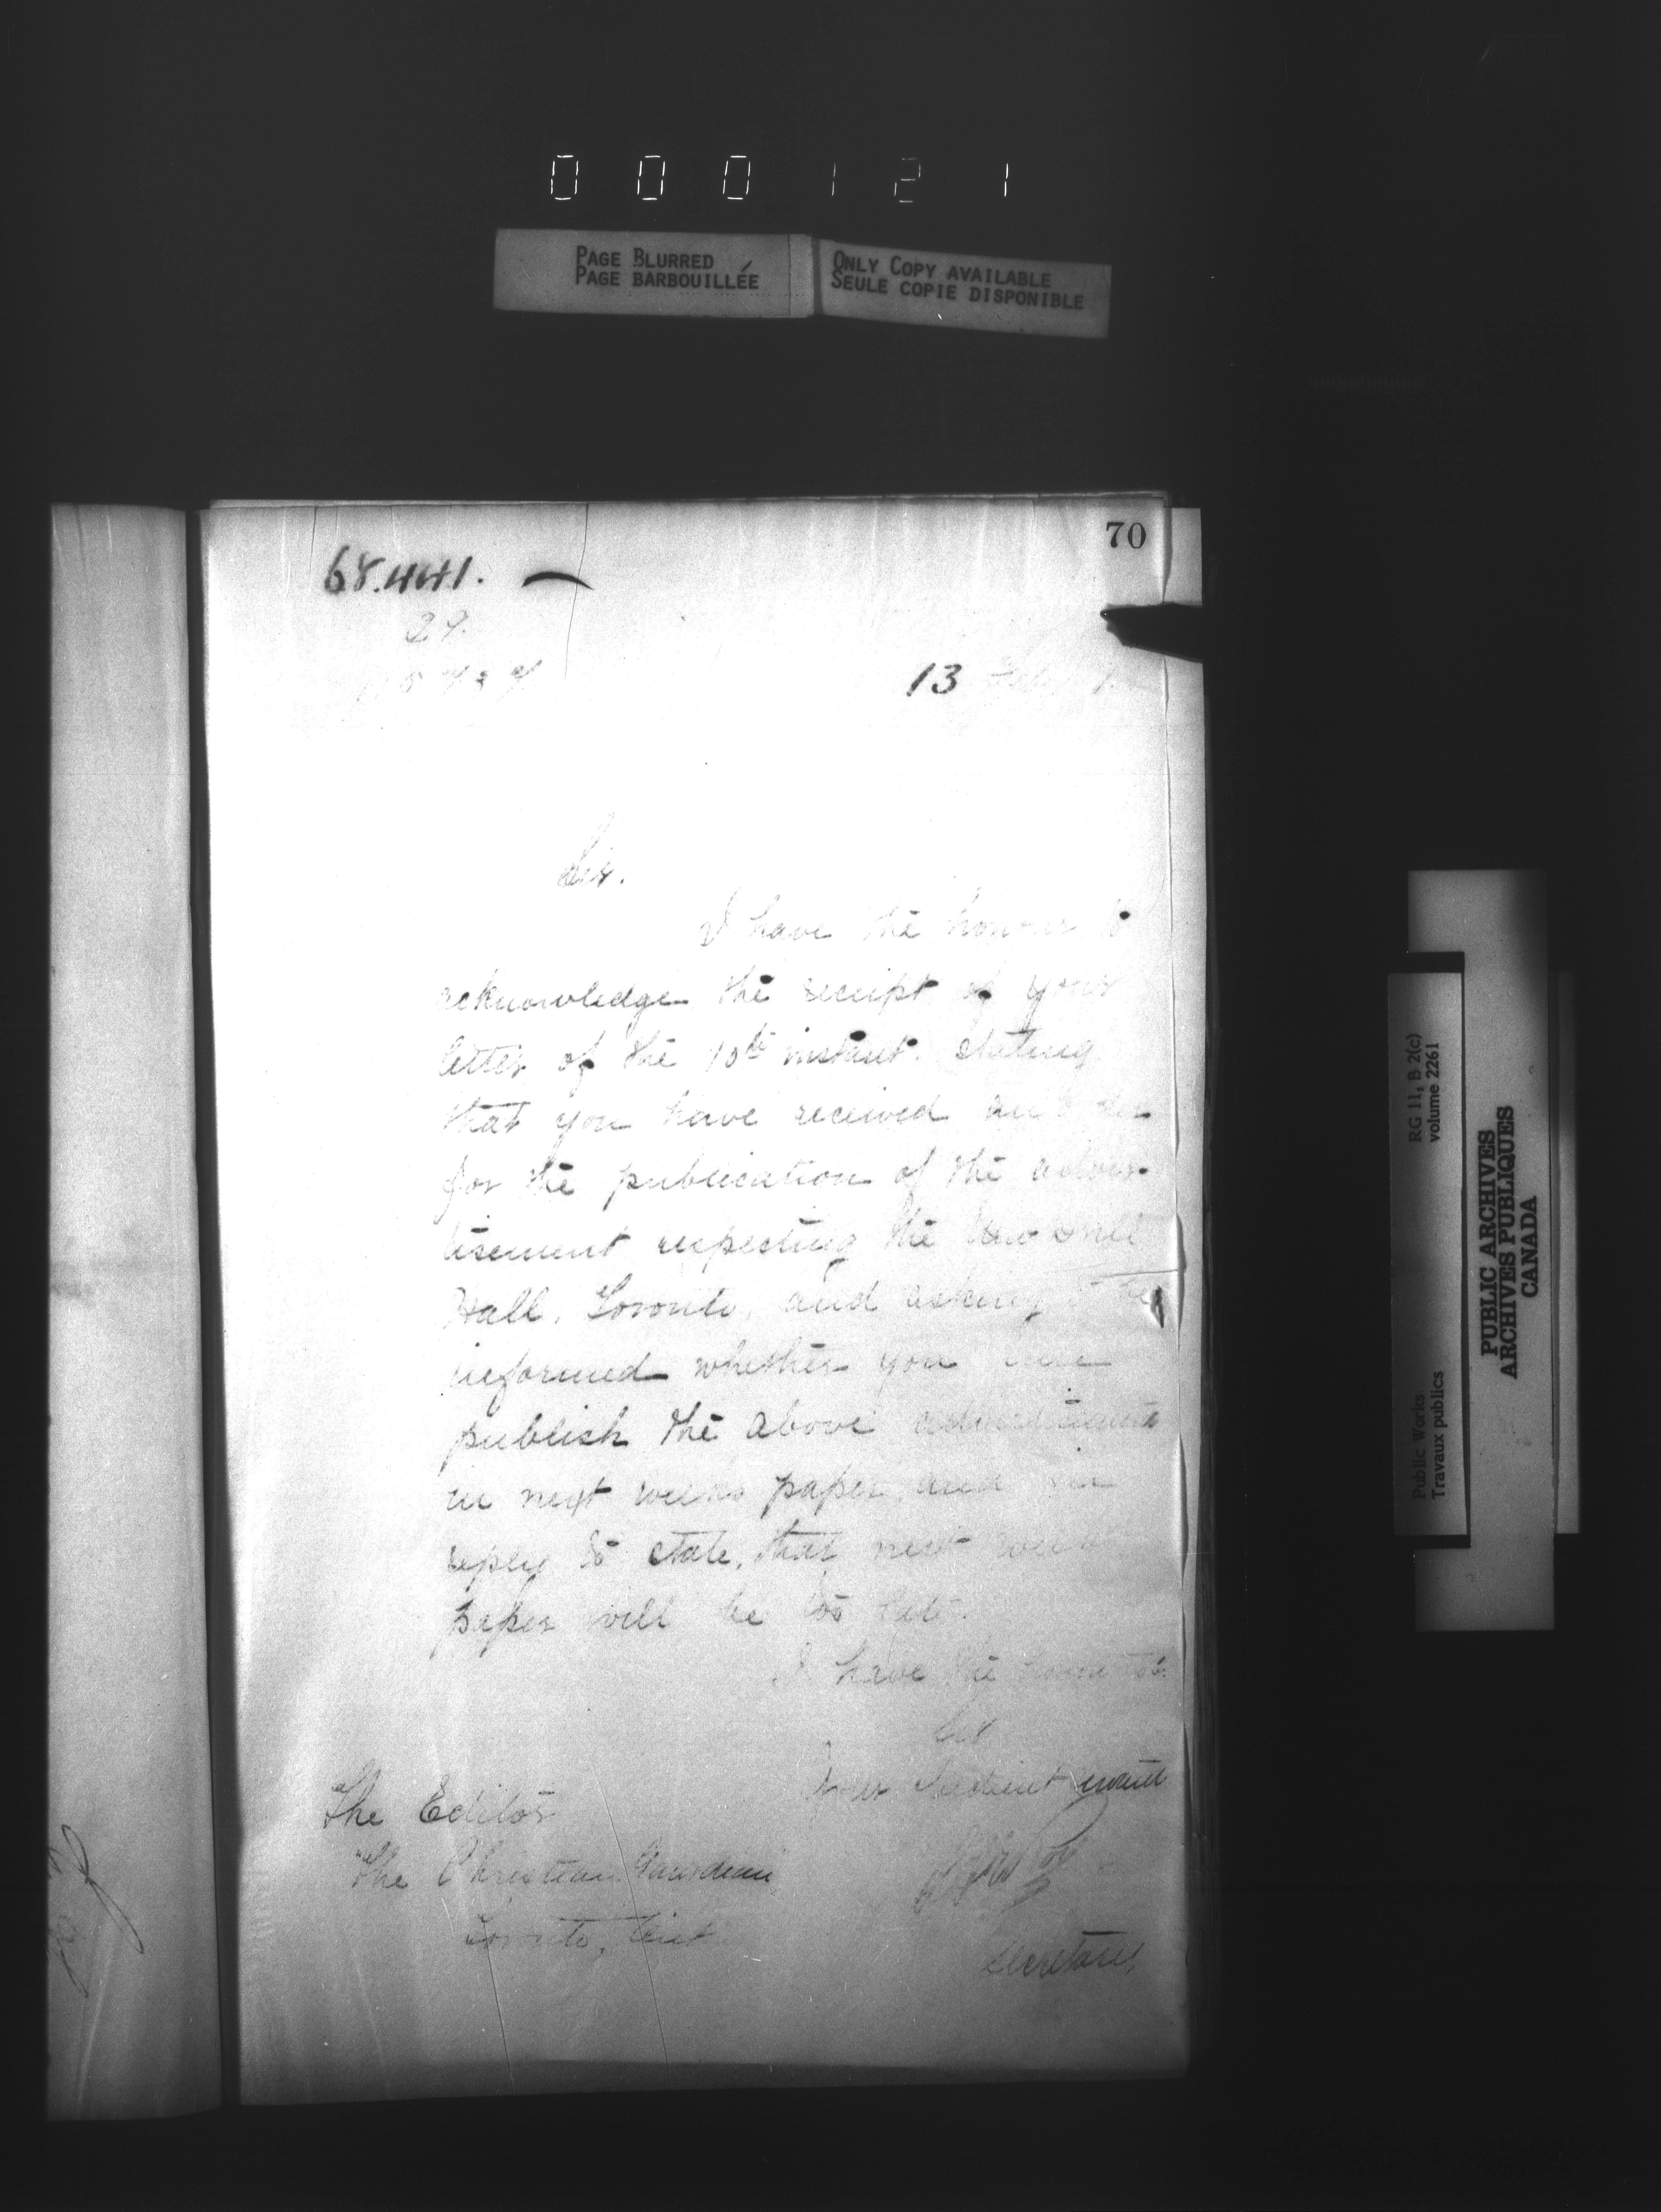 000121
PAGE BLURRED
PAGE BARBOUILLÉE
ONLY COPY AVAILABLE
SEULE COPIE DISPONIBLE
70
68.441.
29.
13
Sir.
I have the honour to
acknowledge the receipt of your
letter of the 10th instant. stating
that you have received an order
for the publication of the adver-
tisement respecting the New Drill
Hall, Toronto, and asking to be
informed whether you
publish the above advertisement
in next weeks paper and in
reply to state, that next week
paper will be too late.
I have the honour to be
Sir
Your obedient servant
The Editor
"The Christian Guardian"
Toronto, Ont
Secretary.
RG 11, B 2(c)
volume 2261
Public Works
Travaux publics
PUBLIC ARCHIVES
ARCHIVES PUBLIQUES
CANADA